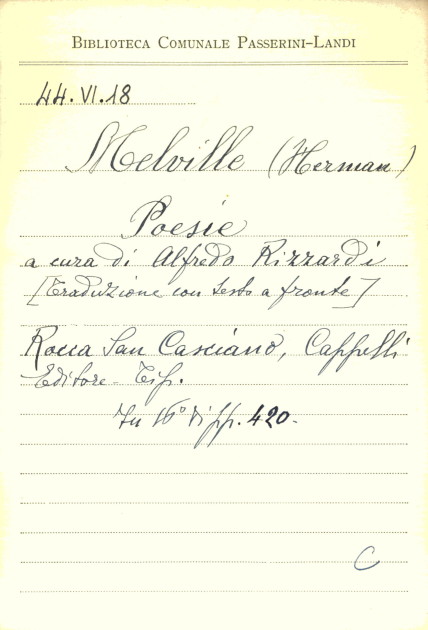 BIBLIOTECA COMUNALE PASSERINI-LANDI
44.VI.18
Melville (Herman)
Poesie
a cura di Alfredo Rizzardi
[Traduzione con testo a fronte]
Rocca San Casciano, Cappelli
Editore - Tip.
In 16° di pp. 420.
C